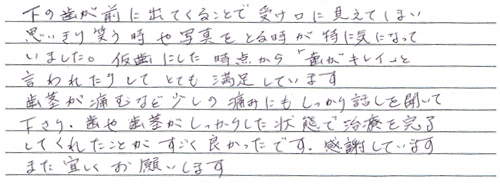 下の歯が前に出てくることで受け口に見えてしまい
思いきり笑う時や写真をとる時が特に気になって
いました。仮歯にした時点から「歯がキレイ」と
言われたりしてとても満足しています
歯茎が痛むなど少しの痛みにもしっかり話しを聞いて
下さり、歯や歯茎がしっかりした状態で治療を完了
してくれたことがすごく良かったです。感謝しています
また宜しくお願いします